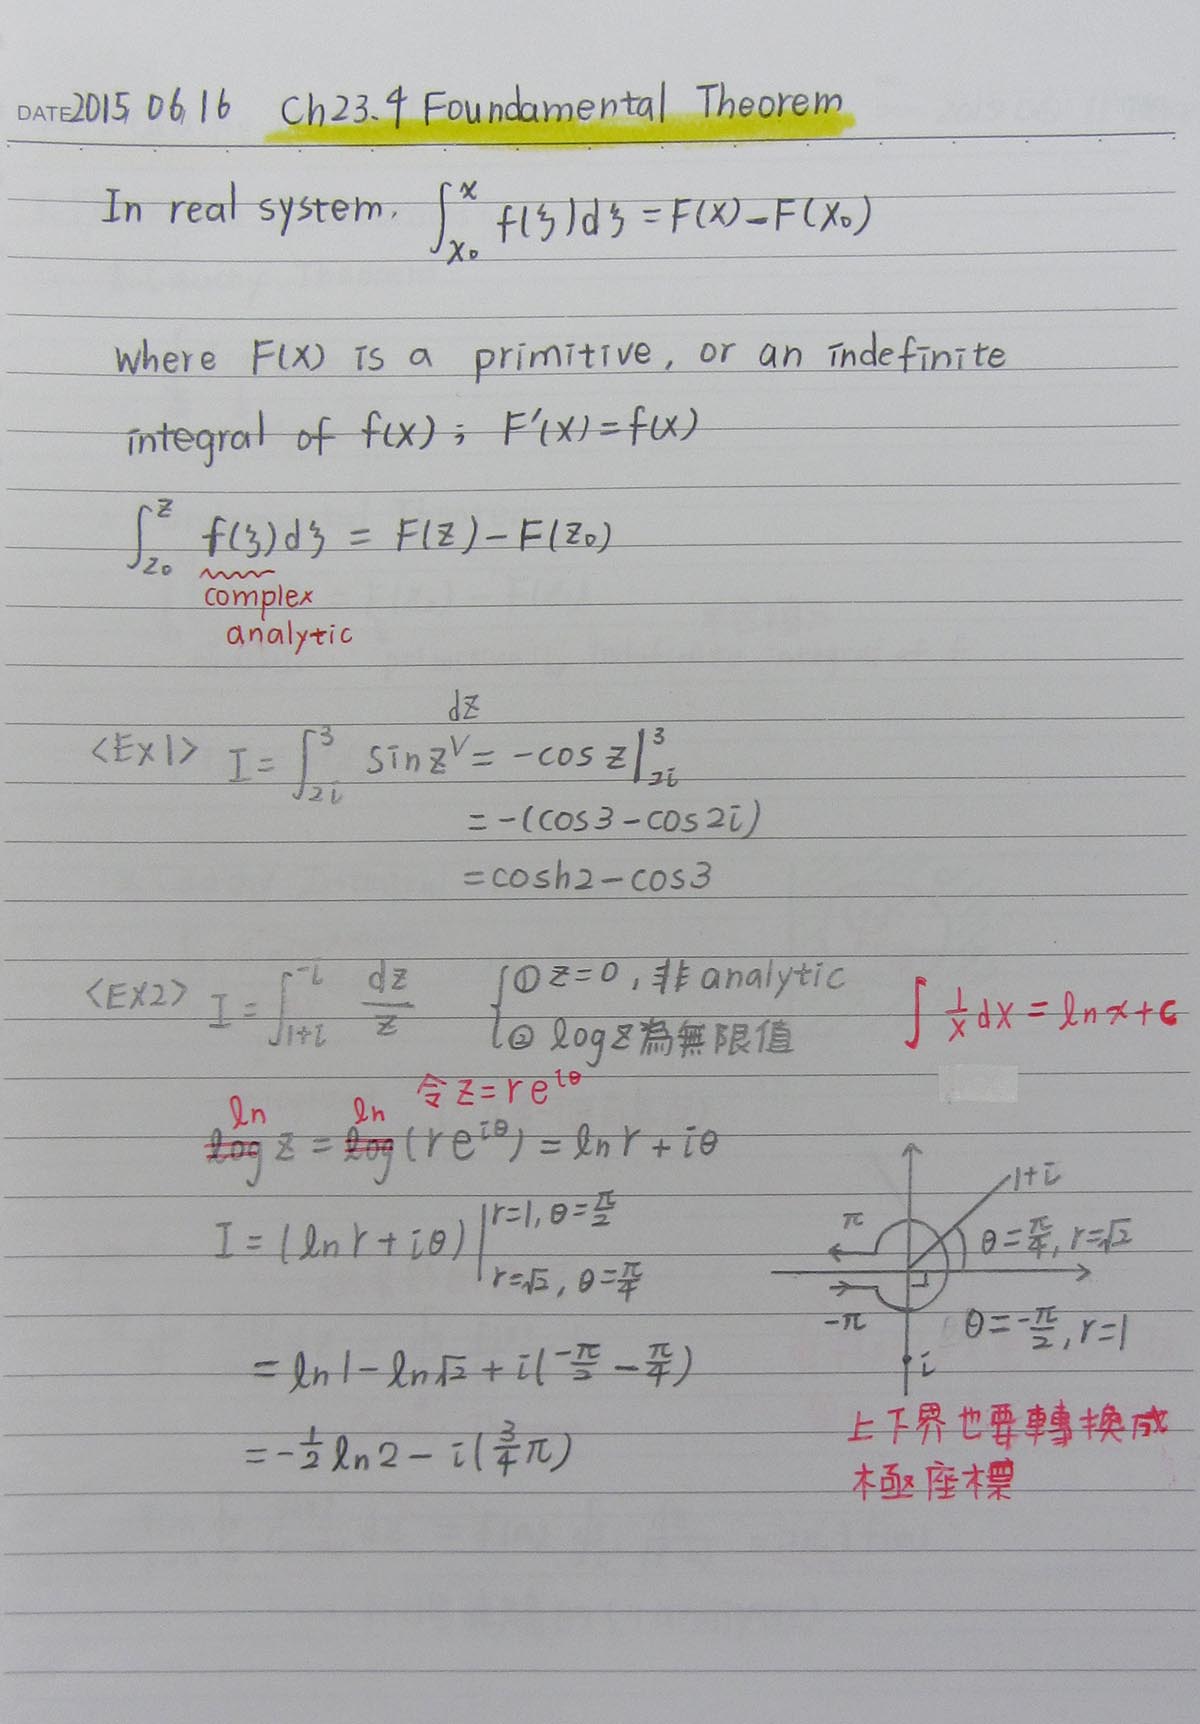 DATE 2015, 06, 16 Ch23.4 Foundamental Theorem
In real system. ∫_{x₀}^{x} f(ξ)dξ = F(x) - F(x₀)
where F(x) is a primitive, or an indefinite
integral of f(x); F'(x) = f(x)
∫_{z₀}^{z} f(ξ)dξ = F(z) - F(z₀)
complex
analytic
dz
<EX1> I = ∫_{2i}^{3} sin z ∨ = -cos z |_{2i}^{3}
= -(cos3 - cos2i)
= cosh2 - cos3
<EX2> I = ∫_{1+i}^{-i} dz/z { ① z=0, 非analytic
② log z 為無限值
∫ 1/x dx = ln x + c
令 z = re^{iθ}
ln ln
log z = log (re^{iθ}) = ln r + iθ
I = (ln r + iθ) |_{r=√2, θ=π/4}^{r=1, θ=π/2}
= ln1 - ln√2 + i(-π/2 - π/4)
= -1/2 ln2 - i(3/4 π)
1+i
π
θ = π/4, r=√2
-π
θ = -π/2, r=1
i
上下界也要轉換成
極座標